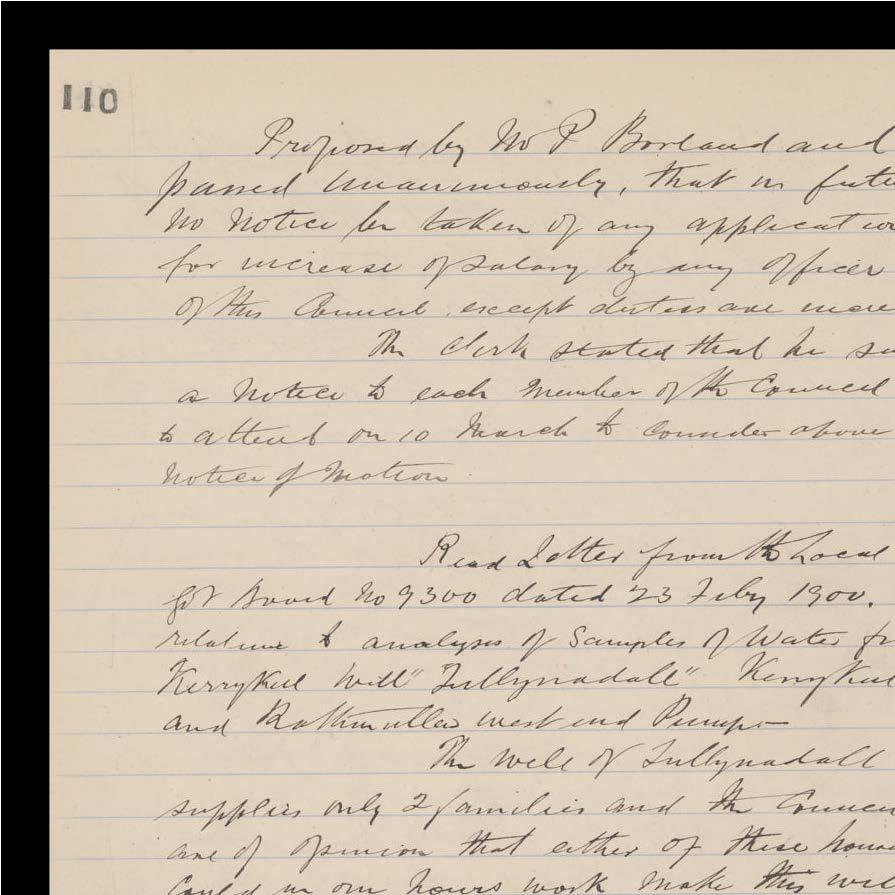 110
Proposed by Mr P Borland and
passed unanimously, that in futu
no Notice be taken of any applicatio
for increase of salary by any Officer
of this Council, except duties are incre
The Clerk stated that he se
a Notice to each Member of the Council
to attend on 10 March to consider above
Notice of Motion
Read Letter from the Local
Govt Board No 9300 dated 23 Feby 1900.
relative to analysis of Samples of Water fr
Kerrykeel Well" "Tullynadall" Kerrykeel
and Rathmullen west end Pumps—
The Well of Tullynadall
supplies only 2 families and the Council
are of opinion that either of these house
could in one hours work make this wel